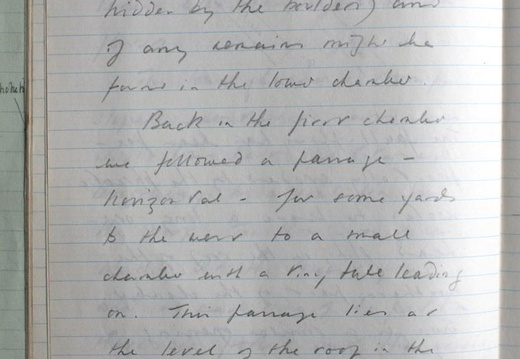 hidden by the boulders) and
if any remains might be
found in the lower chamber.
Back in the first chamber
we followed a passage -
horizontal - for some yards
to the west to a small
chamber with a tiny tube leading
on. This passage lies at
the level of the roof in the